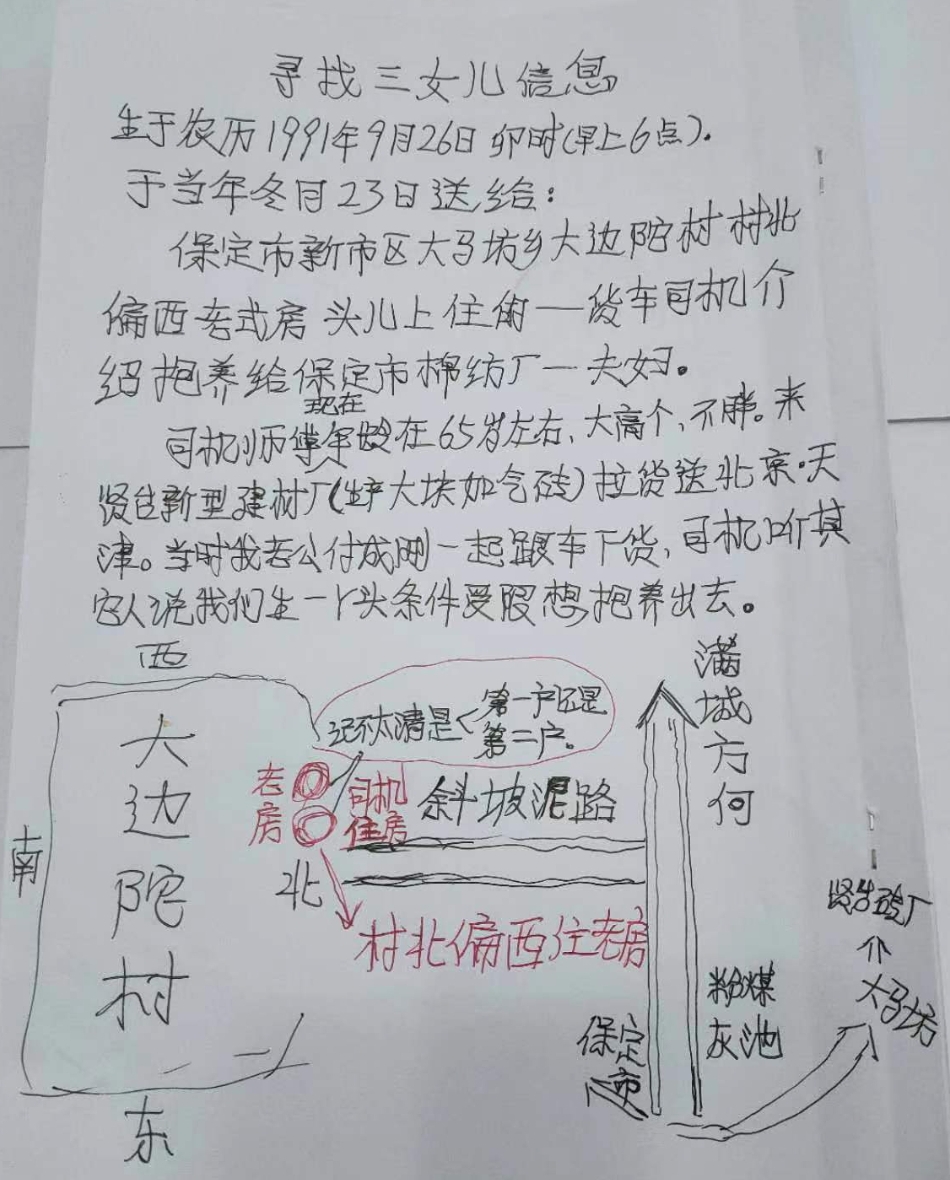 寻找三女儿信息
生于农历1991年9月26日卯时(早上6点).
于当年冬月23日送给:
保定市新市区大马坊乡大边陀村村北
偏西老式房头儿上住的一货车司机介
绍抱养给保定市棉纺厂一夫妇。
现在
司机师傅年龄在65岁左右、大高个、不胖。来
贤台新型建材厂(生产大块加气砖)拉货送北京·天
津。当时我老公付成刚一起跟车下货、司机听其
它人说我们生一丫头条件受限想抱养出去。
西
满城方向
记不太清是<第一户还是
第二户。
大边陀村
老房
司机
住房
斜坡泥路
南
北
村北偏西住老房
贤台砖厂
个
大马坊
粉煤
灰池
保定
市
东